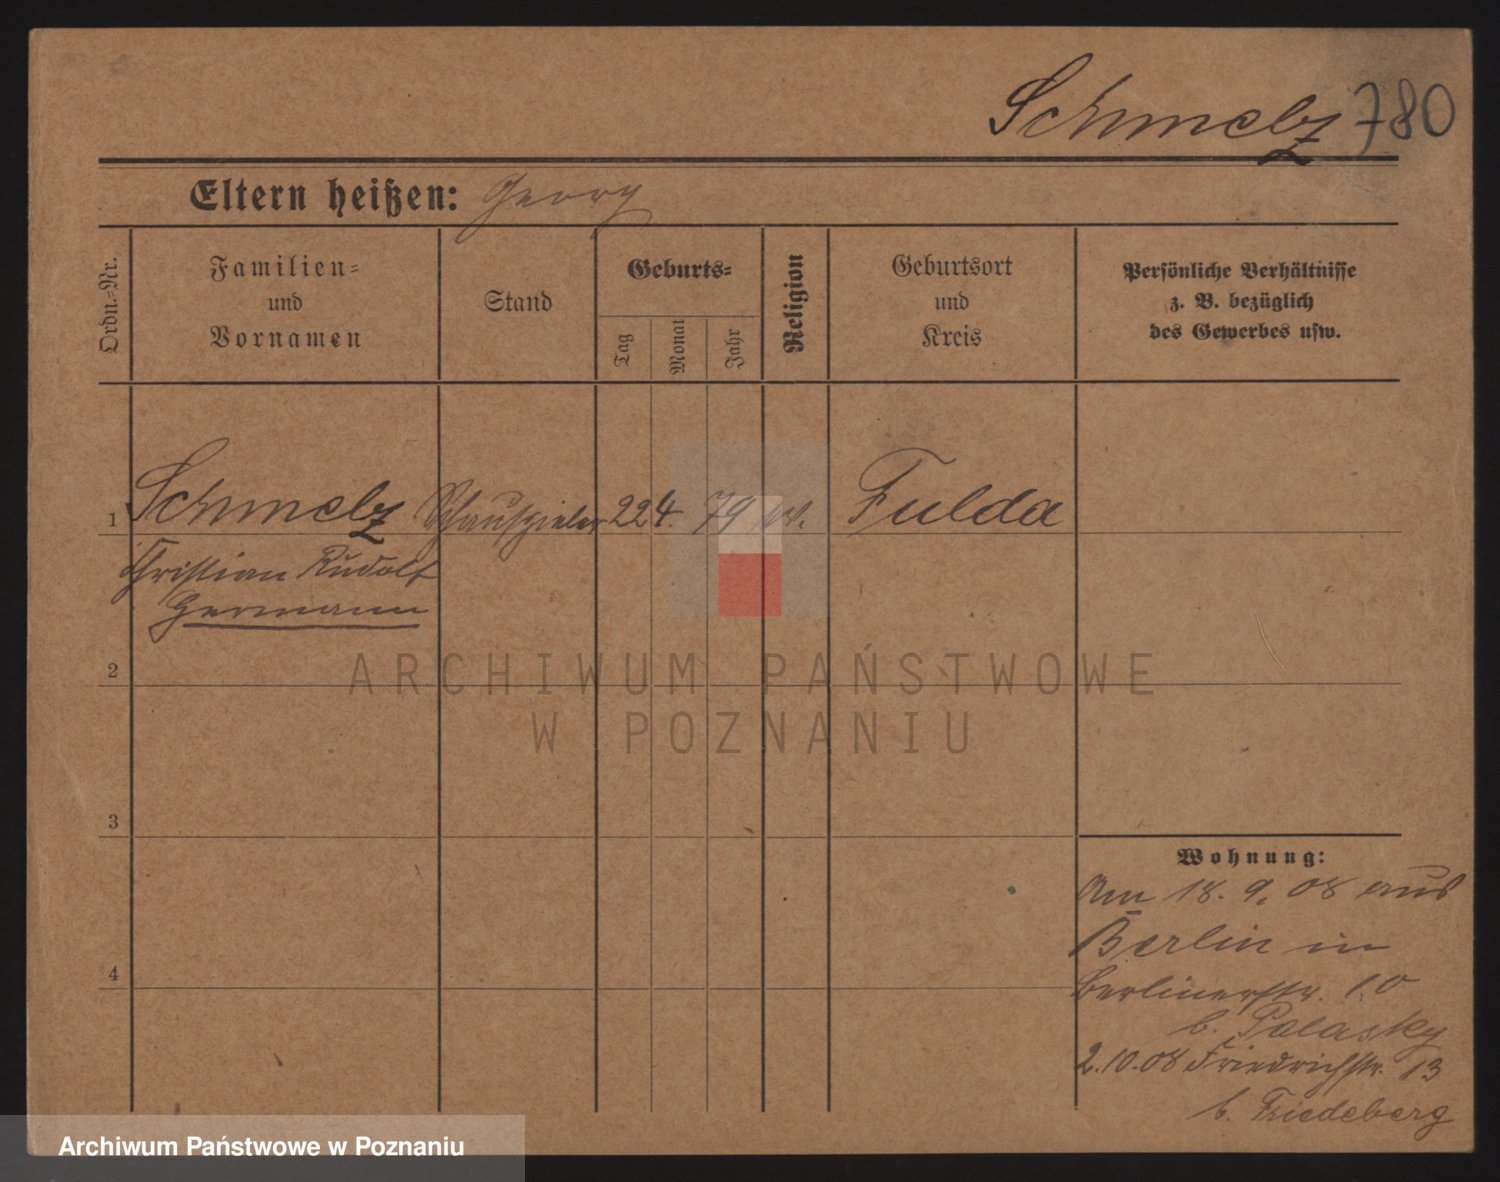 Schmelz 780
Eltern heißen: Georg
Ordn.-Nr.
Familien-
und
Vornamen
Stand
Geburts-
Tag
Monat
Jahr
Religion
Geburtsort
und
Kreis
Persönliche Verhältnisse
z. B. bezüglich
des Gewerbes usw.
1 Schmelz Schauspieler 22 4. 79 Fulda
Christian Rudolf
Hermann
2
3
4
Wohnung:
Am 18. 9. 08 aus
Berlin in
Berlinerstr. 10
b. Palasky
2.10.08 Friedrichstr. 13
b. Friedeberg
ARCHIWUM PAŃSTWOWE
W POZNANIU
Archiwum Państwowe w Poznaniu